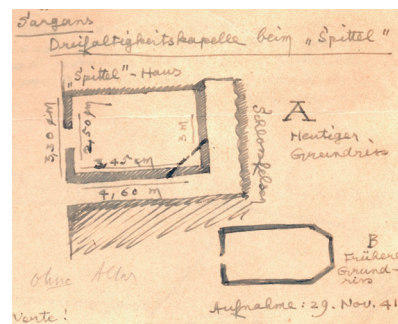 Sargans
Dreifaltigkeitskapelle beim „Spittel"
„Spittel"-Haus
3,30 m
2,50 m
3 m
3,45 m
4,60 m
Schlossfelsen
A
Heutiger
Grundriss
B
Frühere
Grund-
riss
Ohne Altar
Aufnahme: 29. Nov. 41
Verte!